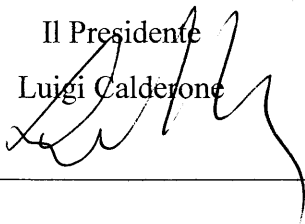 Il Presidente
Luigi Calderone